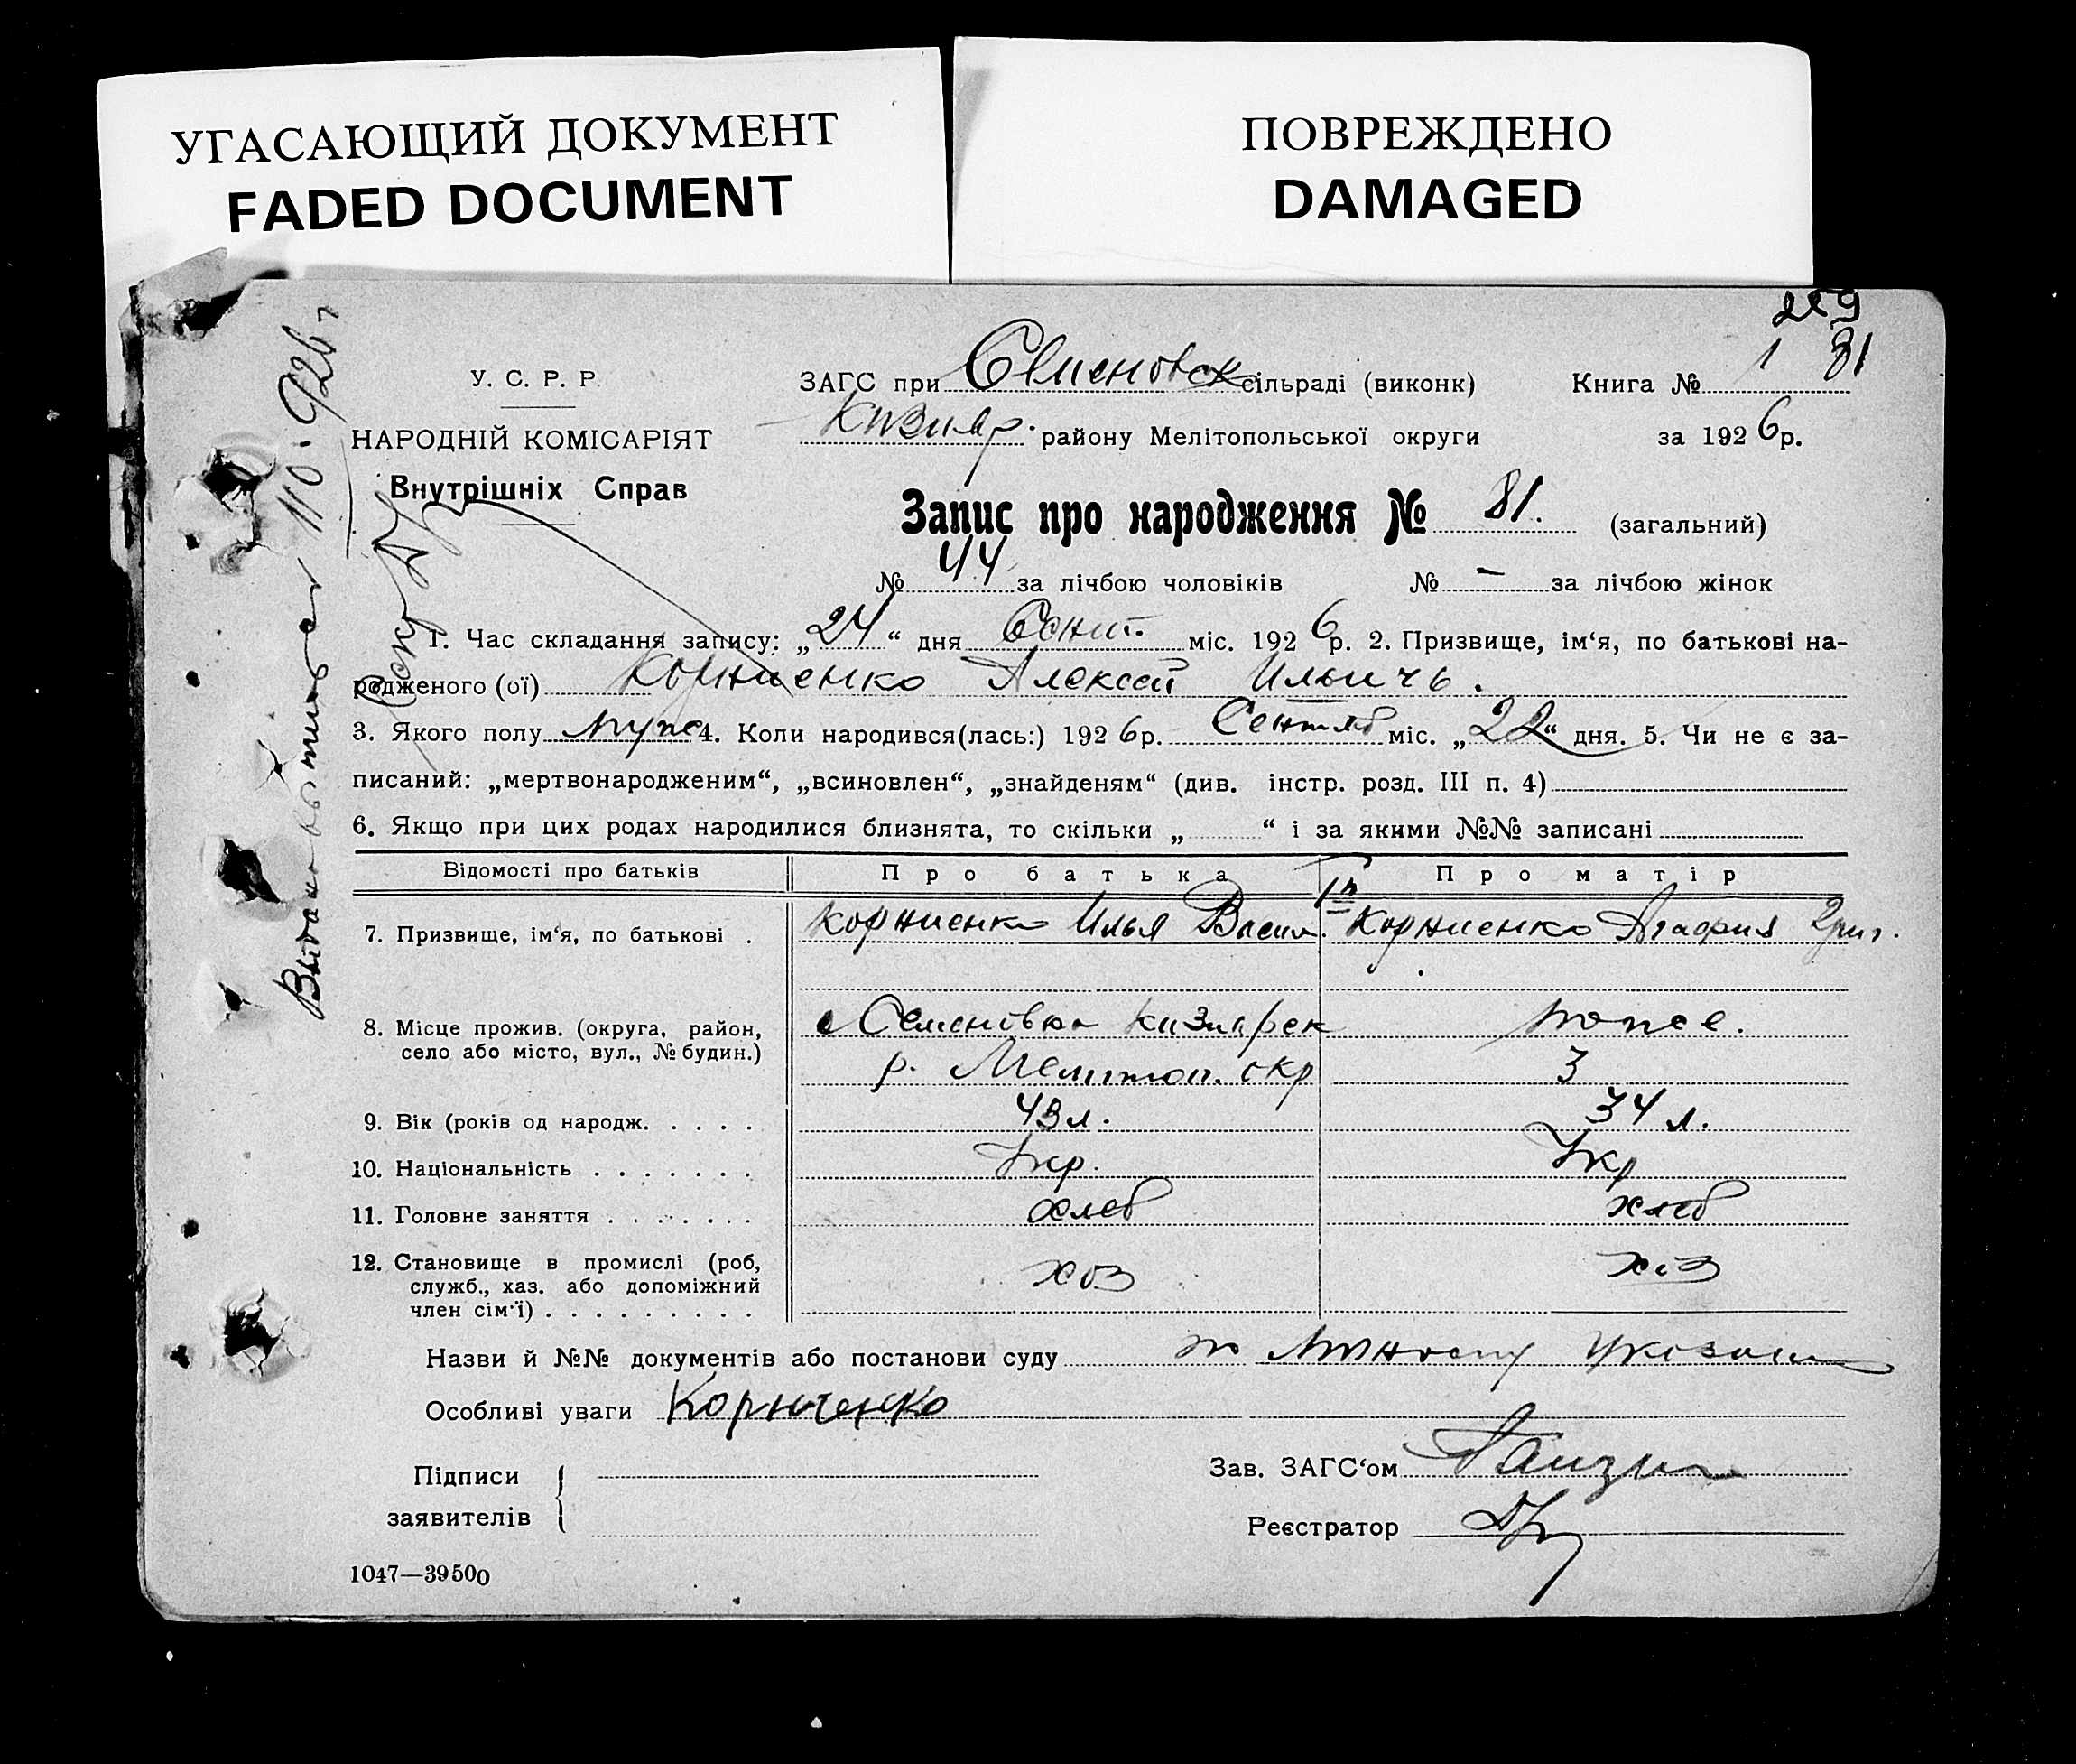 УГАСАЮЩИЙ ДОКУМЕНТ
FADED DOCUMENT
ПОВРЕЖДЕНО
DAMAGED
81
У. С. Р. Р.
ЗАГС при Семеновск сільраді (виконк)
Книга № 1
НАРОДНІЙ КОМІСАРІЯТ
Кизияр. району Мелітопольської округи
за 1926 р.
Внутрішніх Справ
Запис про народження № 81. (загальний)
№ 44 за лічбою чоловіків № – за лічбою жінок
1. Час складання запису: „24“ дня міс. 1926 р. 2. Призвище, ім‘я, по батькові на-
родженого (ої) Корниенко Алексей Ильичь.
3. Якого полу муж 4. Коли народився(лась:) 1926 р. Сентяб міс. „22“ дня. 5. Чи не є за-
писаний: „мертвонародженим“, „всиновлен“, „знайденям“ (див. інстр. розд. III п. 4)
6. Якщо при цих родах народилися близнята, то скільки „ “ і за якими №№ записані
Відомості про батьків Про батька Про матір
7. Призвище, ім‘я, по батькові . Корниенко Илья Васил. Корниенко Агафия Григ.
8. Місце прожив. (округа, район, с Семеновка Кизиярск тоже.
село або місто, вул., № будин.) р. Мелитоп. окр 3
9. Вік (років од народж. . . . . 43 л. 34 л.
10. Національність . . . . . . . Укр. Укр
11. Головне заняття . . . . . . . хлеб хлеб
12. Становище в промислі (роб,
служб., хаз. або допоміжний хоз хоз
член сім‘ї) . . . . . . . . .
Назви й №№ документів або постанови суду по
Особливі уваги Корниенко
Підписи
заявителів
Зав. ЗАГС‘ом
Реєстратор
1047—39500